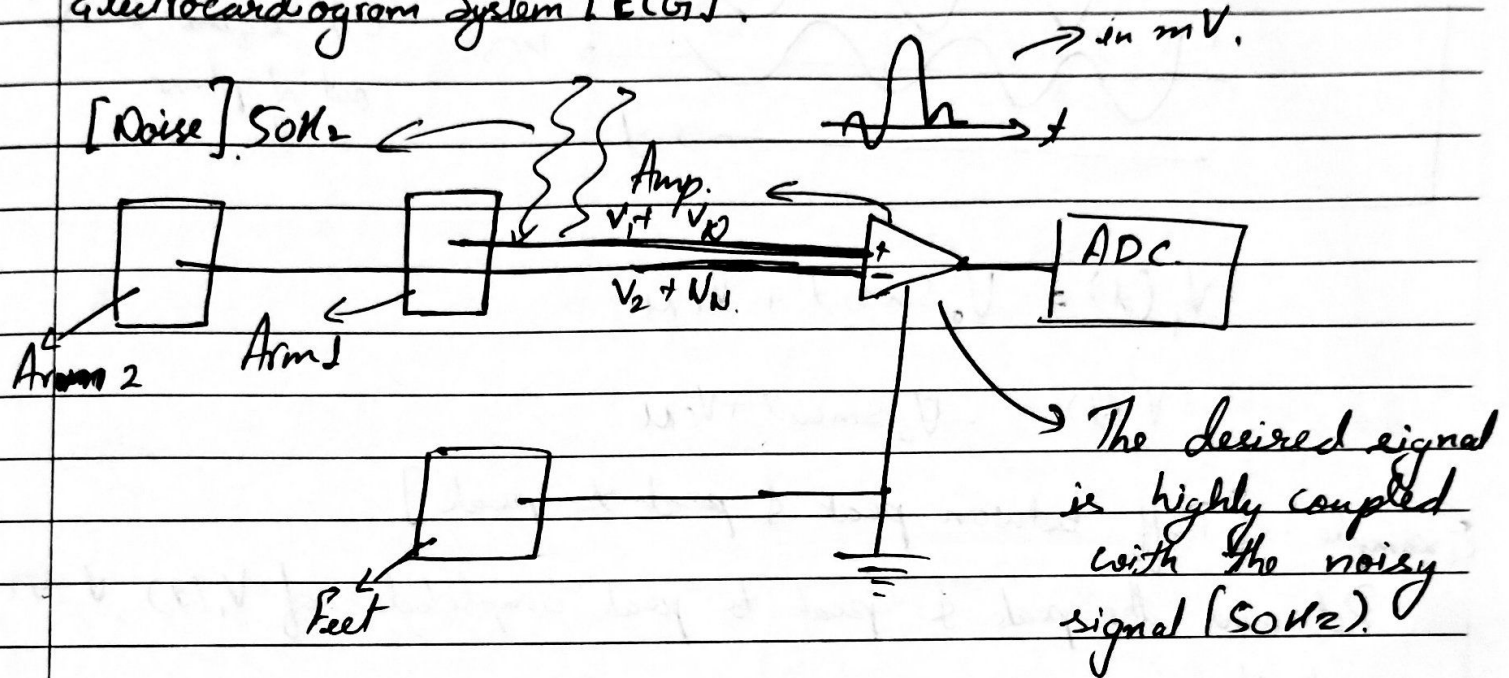 electrocardiogram system [ECG].
in mV.
[Noise]. 50Hz
t
Amp.
V1 + VN
+
ADC.
-
V2 + VN.
Arm 1
Arm 2
The desired signal
is highly coupled
with the noisy
signal (50Hz).
Feet